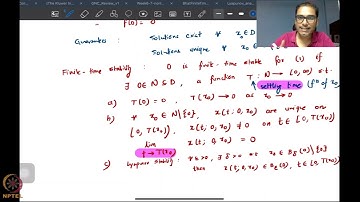 f(0) = 0
Guarantees : Solutions exist ∀ x₀ ∈ D
Solutions unique ∀ x₀ ∈
Finite-time stability : 0 is finite-time stable for (1) if
∃ 0 ∈ N ⊆ D, a function T : N → [0, ∞) s.t.
settling time (fⁿ of x₀)
a) T(0) = 0 , T(x₀) → 0 as x₀ → 0
b) ∀ x₀ ∈ N\{0}, x(t; 0, x₀) are unique on
[0, T(x₀)), x(t; 0, x₀) ≠ 0 on t ∈ [0, T(x₀))
lim x(t; 0, x₀) = 0
t → T(x₀)
c) Lyapunov stability : ∀ ε > 0, ∃ δ > 0 st x₀ ∈ B_δ(0)\{0}
then x(t; 0, x₀) ∈ B_ε(0), t ∈ [0, T(x₀))
NPTEL